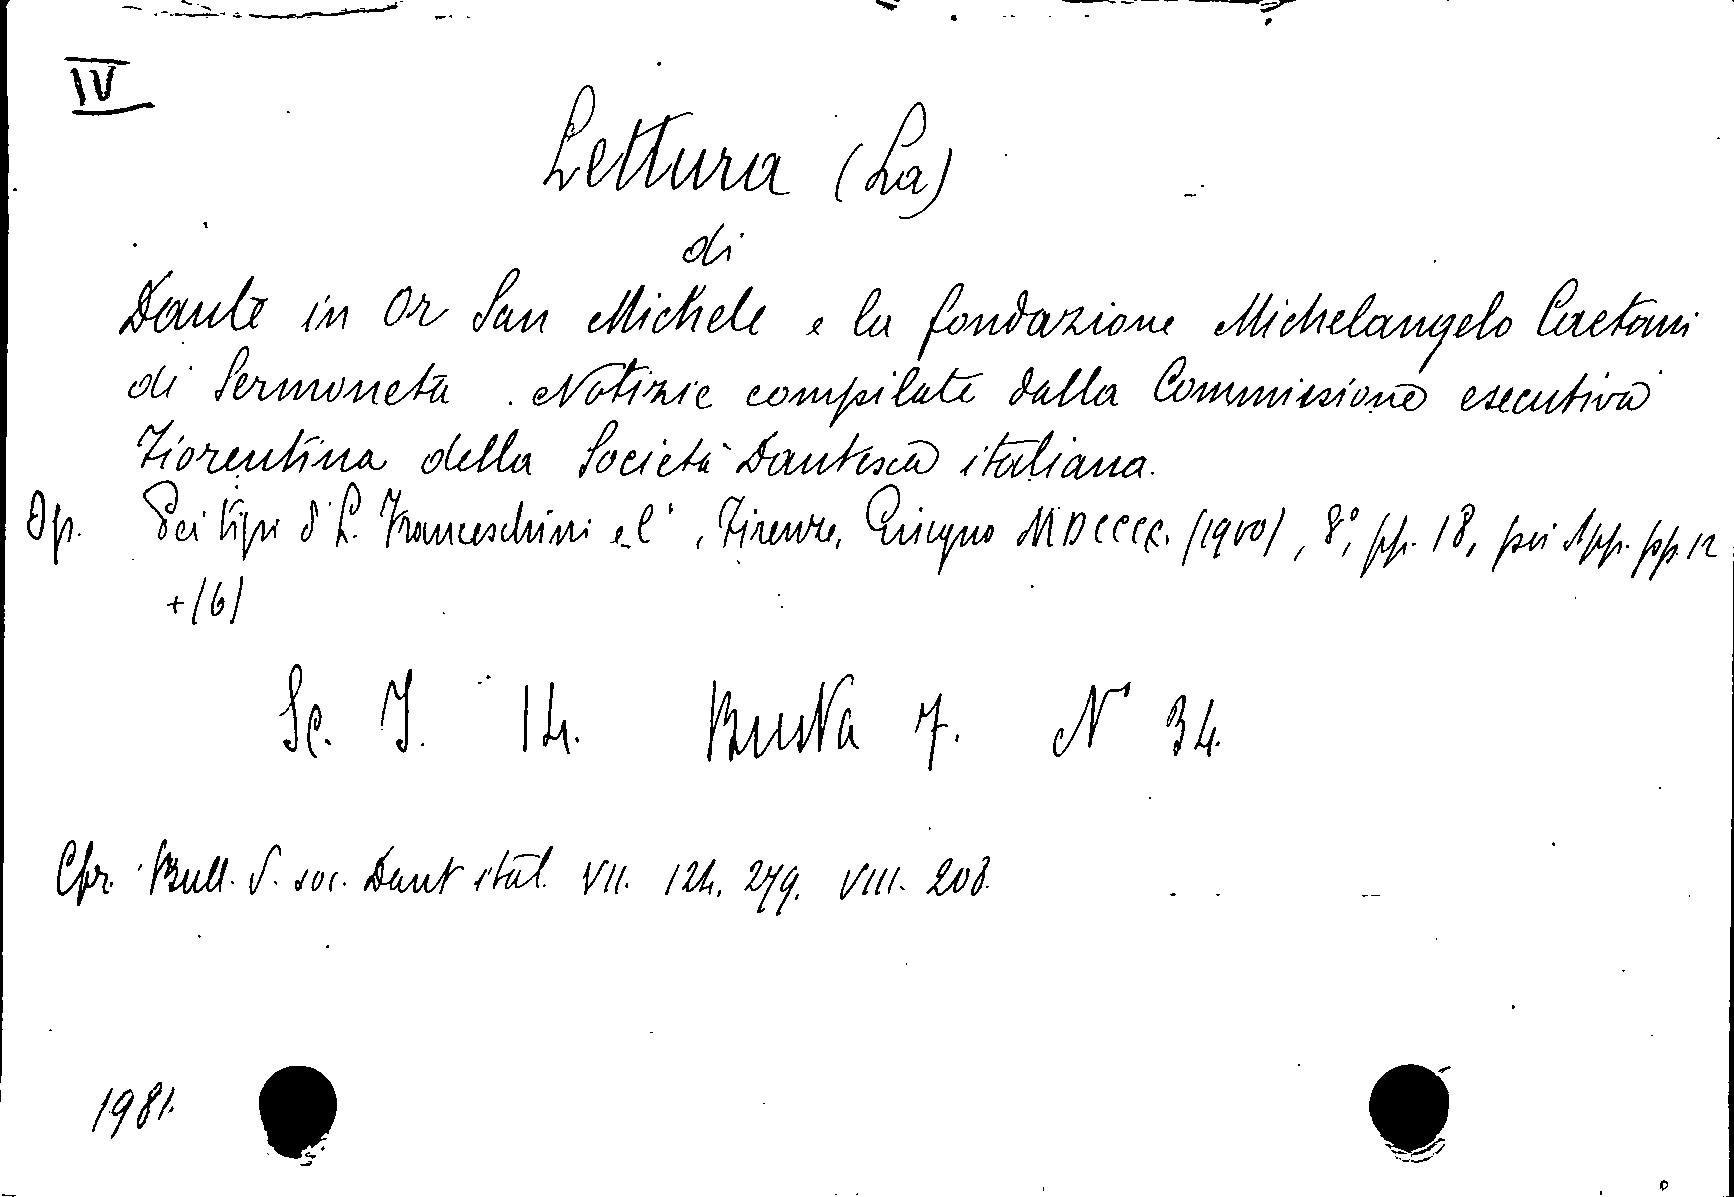 IV
Lettura (La)
di
Dante in Or San Michele e la fondazione Michelangelo Caetani
di Sermoneta. Notizie compilate dalla Commissione esecutiva
Fiorentina della Società Dantesca italiana.
Op. Pei tipi d. L. Franceschini e C.i, Firenze, Giugno MDCCCC. (1900), 8°, pp. 18, poi App. pp. 12
+ (6)
Sc. I. 14. Busta 7. N° 34.
Cfr. Bull. d. soc. Dant ital. VII. 124. 279. VIII. 208.
1981.